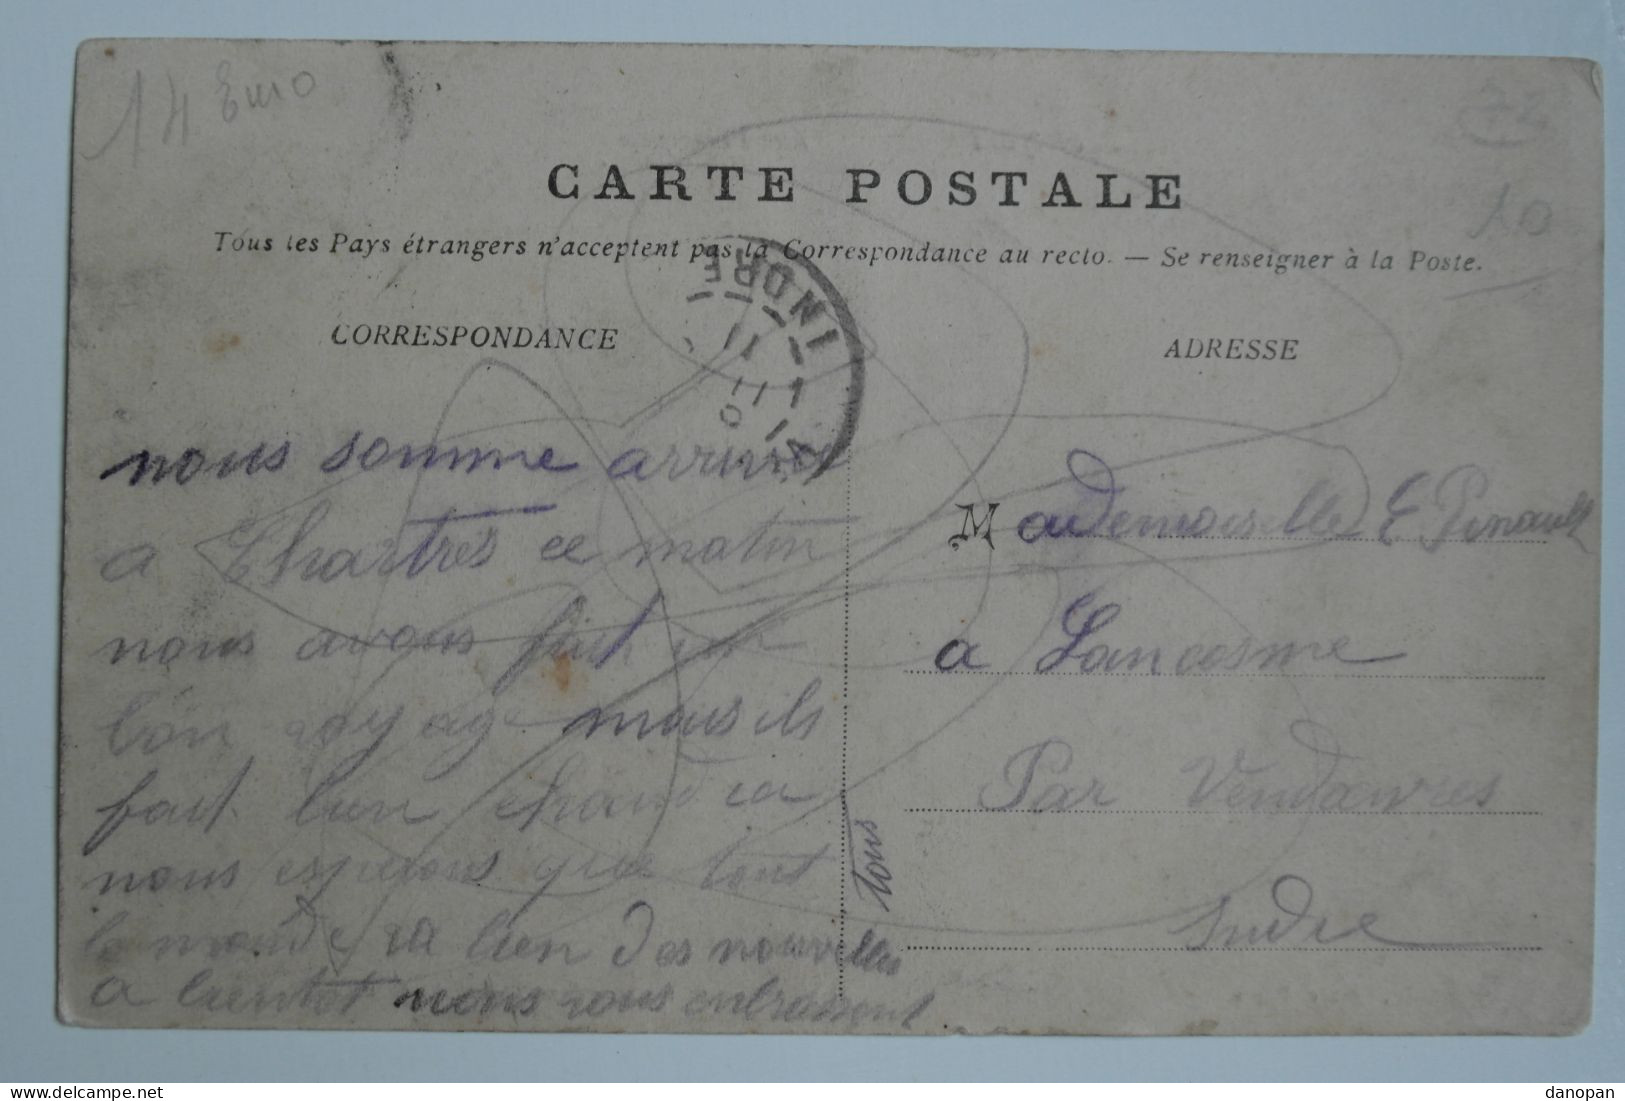 14 Euro
22
10
CARTE POSTALE
Tous les Pays étrangers n'acceptent pas la Correspondance au recto. — Se renseigner à la Poste.
INDRE
CORRESPONDANCE
ADRESSE
nous somme arrivés
a Chartres ce matin
nous avons fait un
bon voyage mais ils
fait bien chaud ca
nous esperons que tout
le monde va bien des nouvelles
a bientot nous vous embrassent
tous
Mademoiselle E Pinault
a Lancosme
Par Vendawres
Indre
danopan